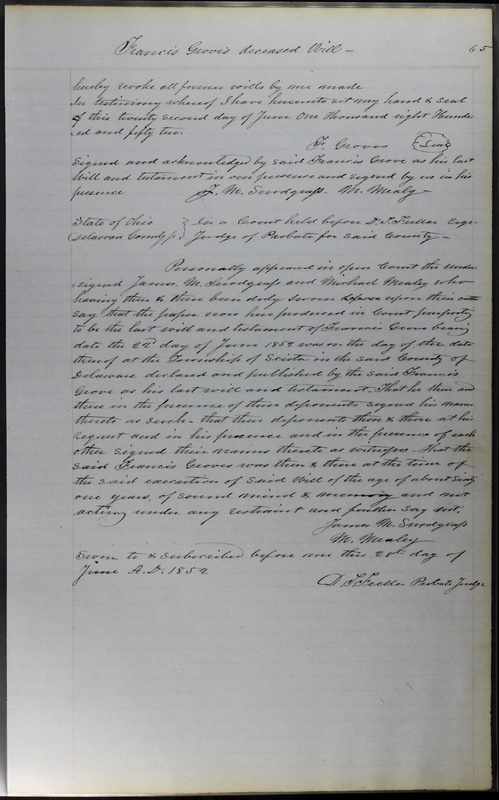 Francis Groves deceased Will — 65
hereby revoke all former wills by me made
In testimony whereof I have hereunto set my hand & seal
this twenty second day of June One thousand eight Hundr
ed and fifty two.
F. Groves Seal
Signed and acknowledged by said Francis Grove as his last
Will and testament in our presence and signed by us in his
presence J. M. Snodgrass M. Mealy
State of Ohio } In a Court held before D. T. Fuller Esqr
Delaware County ss } Judge of Probate for said County —
Personally appeared in open Court the under
signed James M. Snodgrass and Michael Mealey who
having then & there been duly sworn upon their oaths
say that the paper now here produced in Court purporting
to be the last will and testament of Francis Grove bearing
date the 22d day of June 1852 was on the day of the date
thereof at the Township of Scioto in the said County of
Delaware declared and published by the said Francis
Grove as his last will and testament. That he then and
there in the presence of these deponents signed his name
thereto as such - that these deponents then & there at his
request and in his presence and in the presence of each
other signed their names thereto as witnesses. That the
said Francis Groves was then & there at the time of
the said execution of said Will of the age of about sixty
one years, of sound mind & memory and not
acting under any restraint and further say not.
James M. Snodgrass
M. Mealey
Sworn to & Subscribed before me this 28th day of
June A.D. 1852
D. T. Fuller Probate Judge